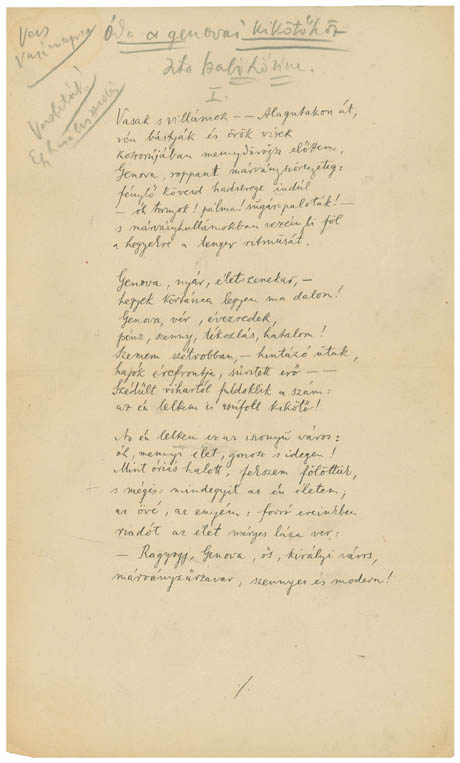 Vers
Vasárnapra
Óda a genovai kikötőhöz
Írta Szabó Lőrinc.
Versbeták!
I.
Vasak s villámok – – Alagutakon át,
vén bástyák és örök vizek
koszorújában mennydörögsz előttem,
Genova, roppant márványszörnyeteg:
fénylő köveid hadserege indul
– óh tornyok! pálma! sugárpaloták! –
s márványhullámokban vezényli föl
a hegyekre a tenger ritmusát.
Genova, nyár, élet, zenekar, –
hegyek körtánca legyen ma dalom!
Genova, vér, évezredek,
pénz, szenny, tékozlás, hatalom!
Szemem szétrobban, – hintázó utak,
hajók ércfrontja, sűrített erő – –
Szédült vihartól fuldoklik a szám:
az én lelkem is zsúfolt kikötő!
Az én lelkem ez az iszonyú város:
óh, mennyi élet, gonosz s idegen!
Mint óriás halott, fekszem fölöttük,
s mégis: mindegyik az én életem,
az övé, az enyém: forró ereinkben
riadót az élet mérges láza ver:
– Ragyogj, Genova, ős, királyi város,
márványzűrzavar, szennyes és modern!
./.